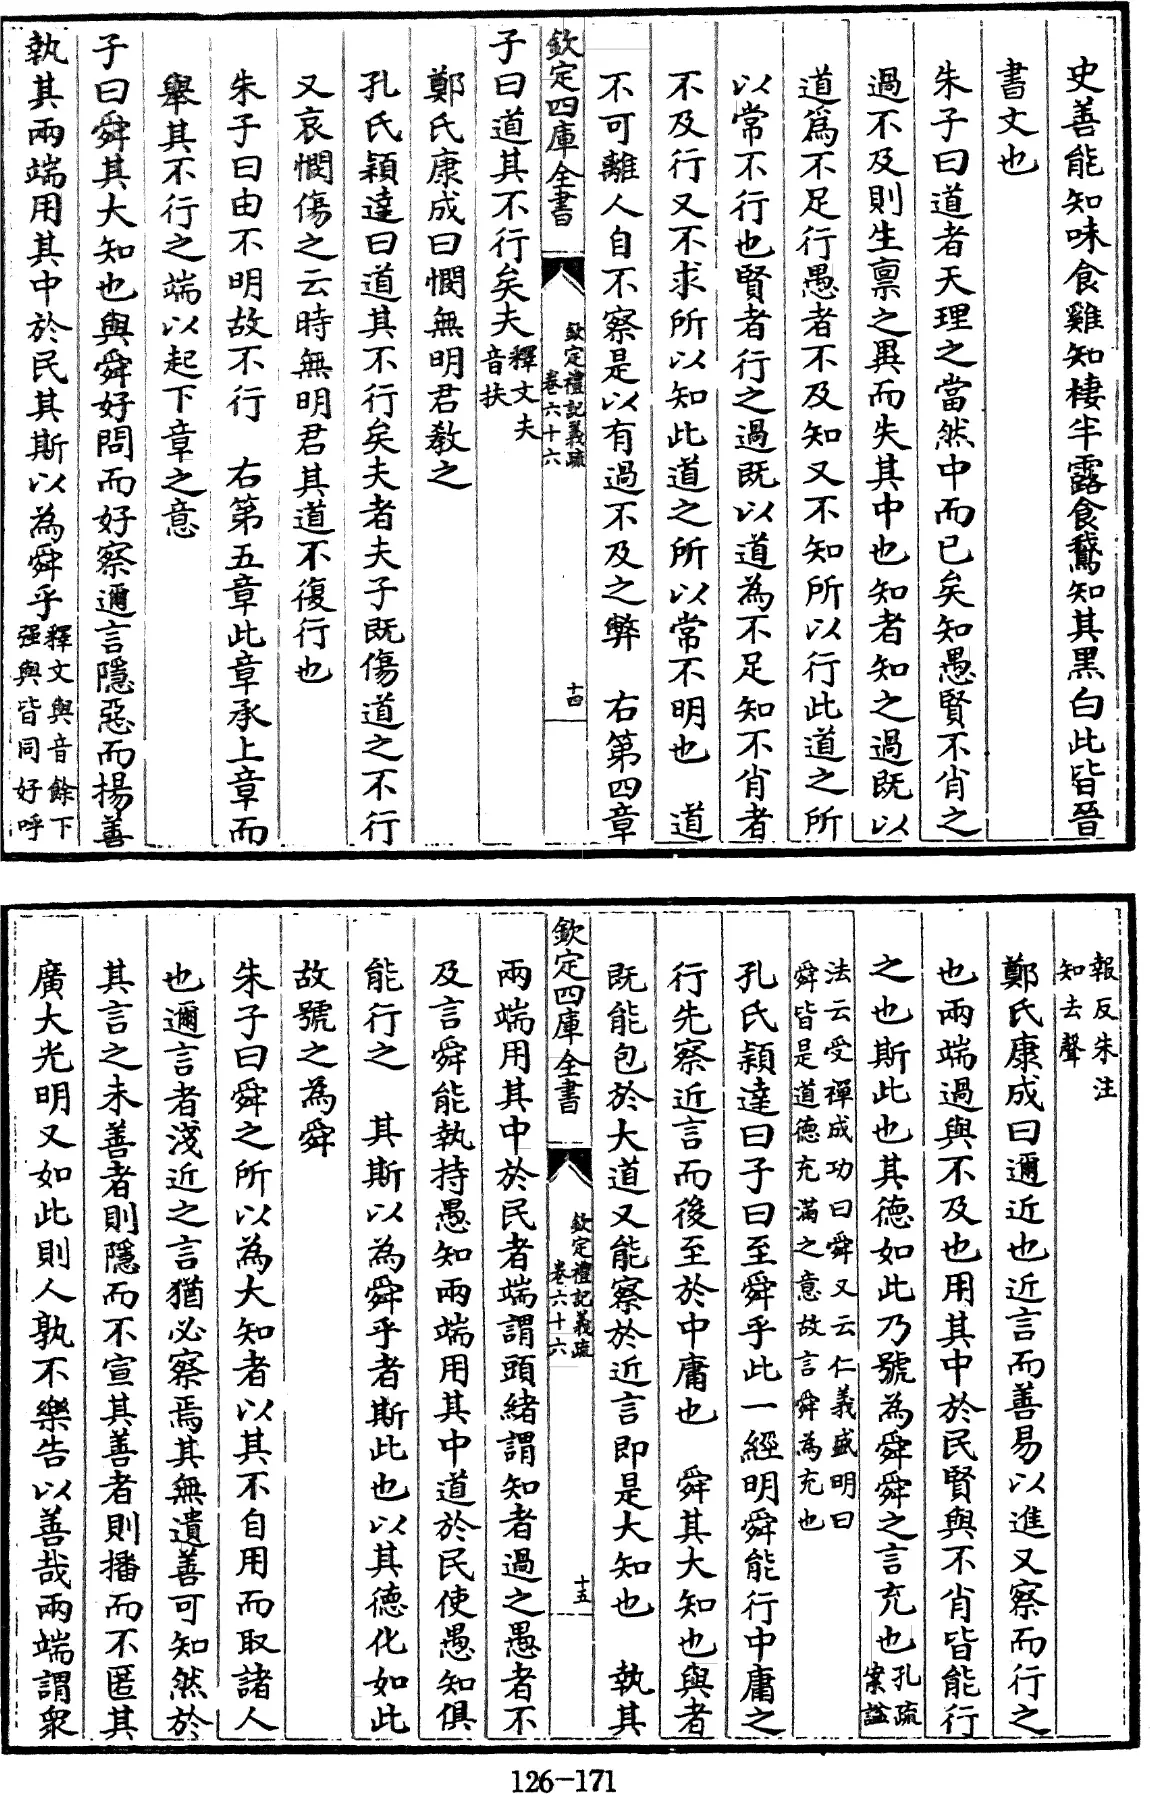 史善能知味食雞知棲半露食鵞知其黑白此皆晉
書文也
朱子曰道者天理之當然中而已矣知愚賢不肖之
過不及則生禀之異而失其中也知者知之過既以
道爲不足行愚者不及知又不知所以行此道之所
以常不行也賢者行之過既以道為不足知不肖者
不及行又不求所以知此道之所以常不明也　道
不可離人自不察是以有過不及之弊　右第四章
欽定四庫全書
欽定禮記義疏
卷六十六
十四
子曰道其不行矣夫釋文夫
音扶
鄭氏康成曰憫無明君教之
孔氏穎達曰道其不行矣夫者夫子既傷道之不行
又哀憫傷之云時無明君其道不復行也
朱子曰由不明故不行　右第五章此章承上章而
舉其不行之端以起下章之意
子曰舜其大知也與舜好問而好察邇言隱惡而揚善
執其兩端用其中於民其斯以為舜乎釋文與音餘下
强與皆同好呼
報反朱注
知去聲
鄭氏康成曰邇近也近言而善易以進又察而行之
也兩端過與不及也用其中於民賢與不肖皆能行
之也斯此也其德如此乃號為舜舜之言充也孔疏
案諡
法云受禪成功曰舜又云仁義盛明曰
舜皆是道德充滿之意故言舜為充也
孔氏穎達曰子曰至舜乎此一經明舜能行中庸之
行先察近言而後至於中庸也　舜其大知也與者
既能包於大道又能察於近言即是大知也　執其
欽定四庫全書
欽定禮記義疏
卷六十六
十五
兩端用其中於民者端謂頭緒謂知者過之愚者不
及言舜能執持愚知兩端用其中道於民使愚知俱
能行之　其斯以為舜乎者斯此也以其德化如此
故號之為舜
朱子曰舜之所以為大知者以其不自用而取諸人
也邇言者淺近之言猶必察焉其無遺善可知然於
其言之未善者則隱而不宣其善者則播而不匿其
廣大光明又如此則人孰不樂告以善哉兩端謂衆
126-171